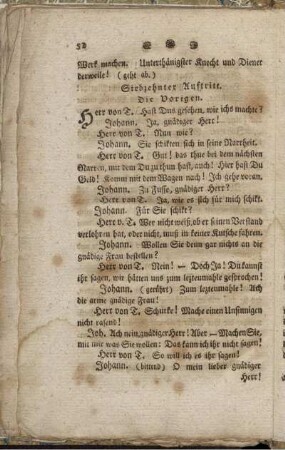 52
Werk machen. Unterthänigster Knecht und Diener
derweile! (geht ab.)
Siebzehnter Auftritt.
Die Vorigen.
Herr von T. Hast Dus gesehen, wie ichs machte?
Johann. Ja, gnädiger Herr!
Herr von T. Nun wie?
Johann. Sie schikten sich in seine Narrheit.
Herr von T. Gut! das thue bei dem nächsten
Narren, mit dem Du zu thun hast, auch! Hier hast Du
Geld! Komm mit dem Wagen nach! Ich gehe voran.
Johann. Zu Fusse, gnädiger Herr?
Herr von T. Ja, wie es sich für mich schikt.
Johann. Für Sie schikt?
Herr v. T. Wer nicht weiß, ob er seinen Verstand
verlohren hat, oder nicht, muß in keiner Kutsche fahren.
Johann. Wollen Sie denn gar nichts an die
gnädige Frau bestellen?
Herr von T. Nein! — Doch Ja! Du kannst
ihr sagen, wir hätten uns zum leztenmahle gesprochen!
Johann. (gerührt) Zum leztenmahle! Ach
die arme gnädige Frau!
Herr von T. Schurke! Mach einen Unsinnigen
nicht rasend!
Joh. Ach nein, gnädiger Herr! Aber — Machen Sie,
mit mir was Sie wollen: Das kann ich ihr nicht sagen!
Herr von T. So will ich es ihr sagen!
Johann. (bittend) O mein lieber gnädiger
Herr!